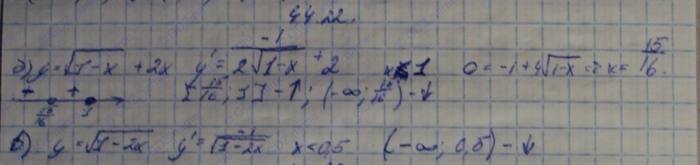 44.22.
б) y = √1-x + 2x y' = -1/2√1-x + 2 x ≤ 1 0 = -1 + 4√1-x = x = 15/16.
+ 15/16 + 1 [15/16; 1] - ↑; (-∞; 15/16) - ↓
в) y = √1-2x y' = -1/√1-2x x < 0,5 (-∞; 0,5) - ↓